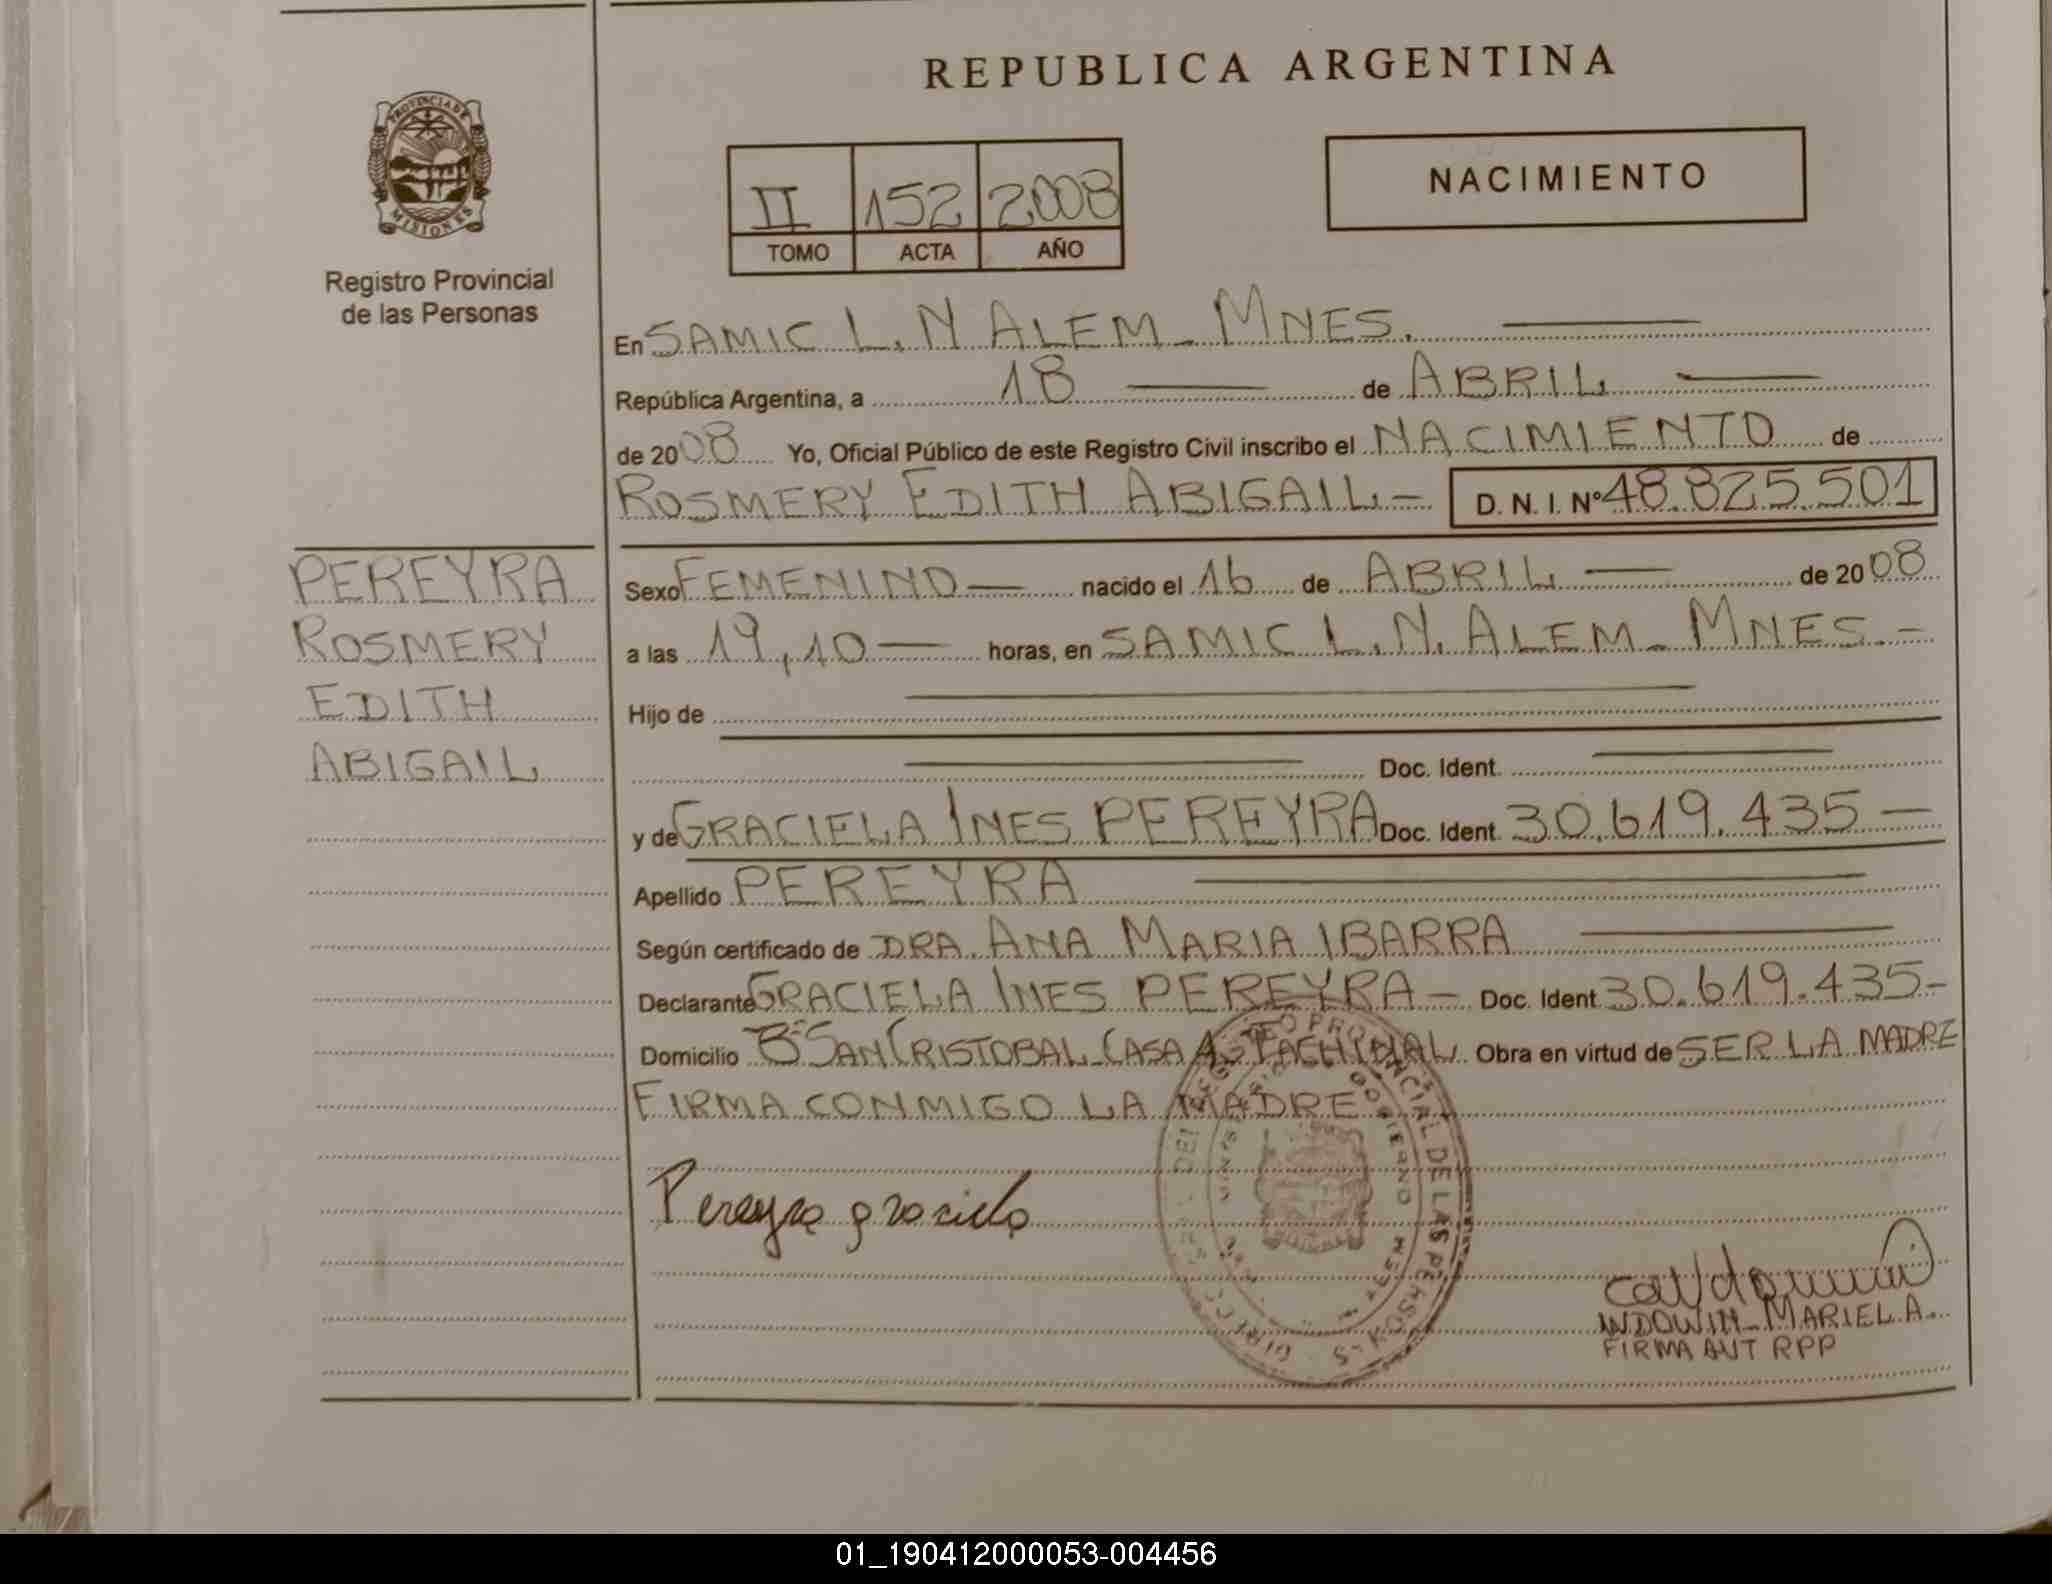 REPUBLICA ARGENTINA
PROVINCIA DE
MISIONES
Registro Provincial
de las Personas
II 152 2008
TOMO ACTA AÑO
NACIMIENTO
En SAMIC L. N ALEM_ MNES.
República Argentina, a 18 de ABRIL
de 2008 Yo, Oficial Público de este Registro Civil inscribo el NACIMIENTO de
ROSMERY EDITH ABIGAIL- D. N. I. Nº 48.825.501
PEREYRA
ROSMERY
EDITH
ABIGAIL
Sexo FEMENINO nacido el 16 de ABRIL de 2008
a las 19,10 horas, en SAMIC L.N. ALEM_ MNES.-
Hijo de
Doc. Ident.
y de GRACIELA INES PEREYRA Doc. Ident. 30.619.435-
Apellido PEREYRA
Según certificado de DRA. ANA MARIA IBARRA
Declarante GRACIELA INES PEREYRA- Doc. Ident. 30.619.435-
Domicilio Bº SAN CRISTOBAL CASA Obra en virtud de SER LA MADRE
FIRMA CONMIGO LA MADRE
Pereyra graciela
PROVINCIAL DE LAS PERSONAS
GOBIERNO
MARIEL A.
FIRMA AUT RPP
01_190412000053-004456